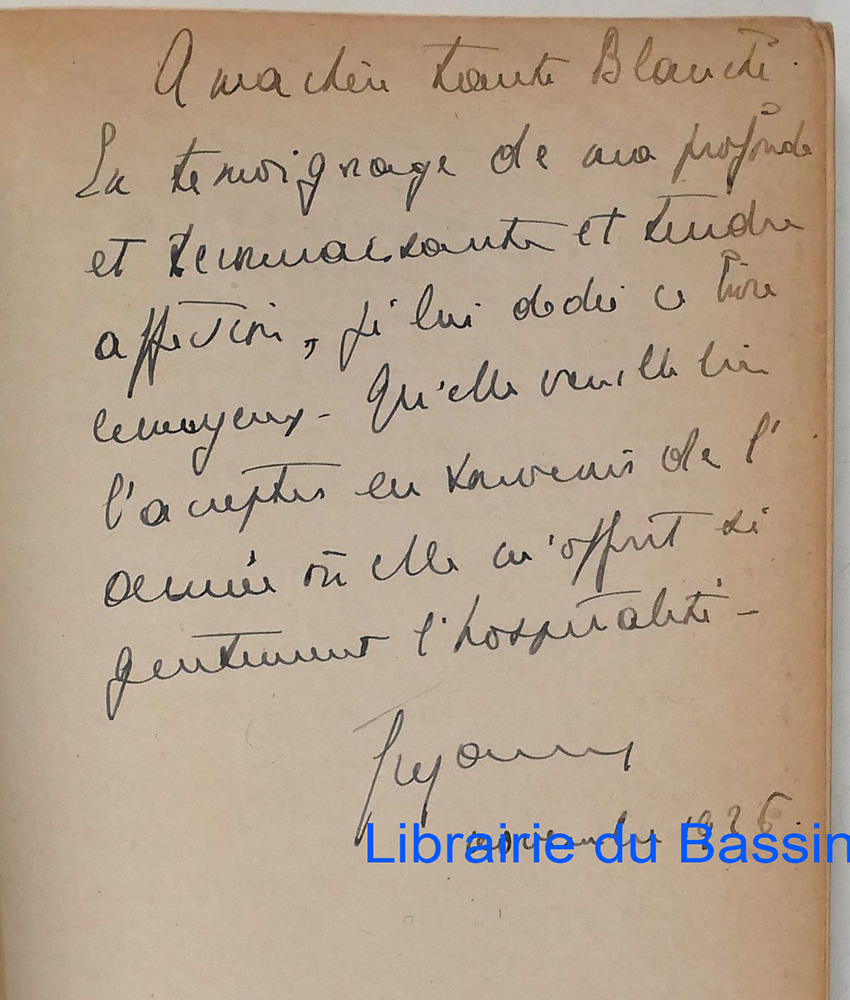 A ma chère tante Blanche.
En témoignage de ma profonde
et reconnaissante et tendre
affection, je lui dédie ce livre
Qu'elle veuille bien
l'accepter en souvenir de l'
année où elle m'offrit si
gentiment l'hospitalité -
novembre 1936.
Librairie du Bassin